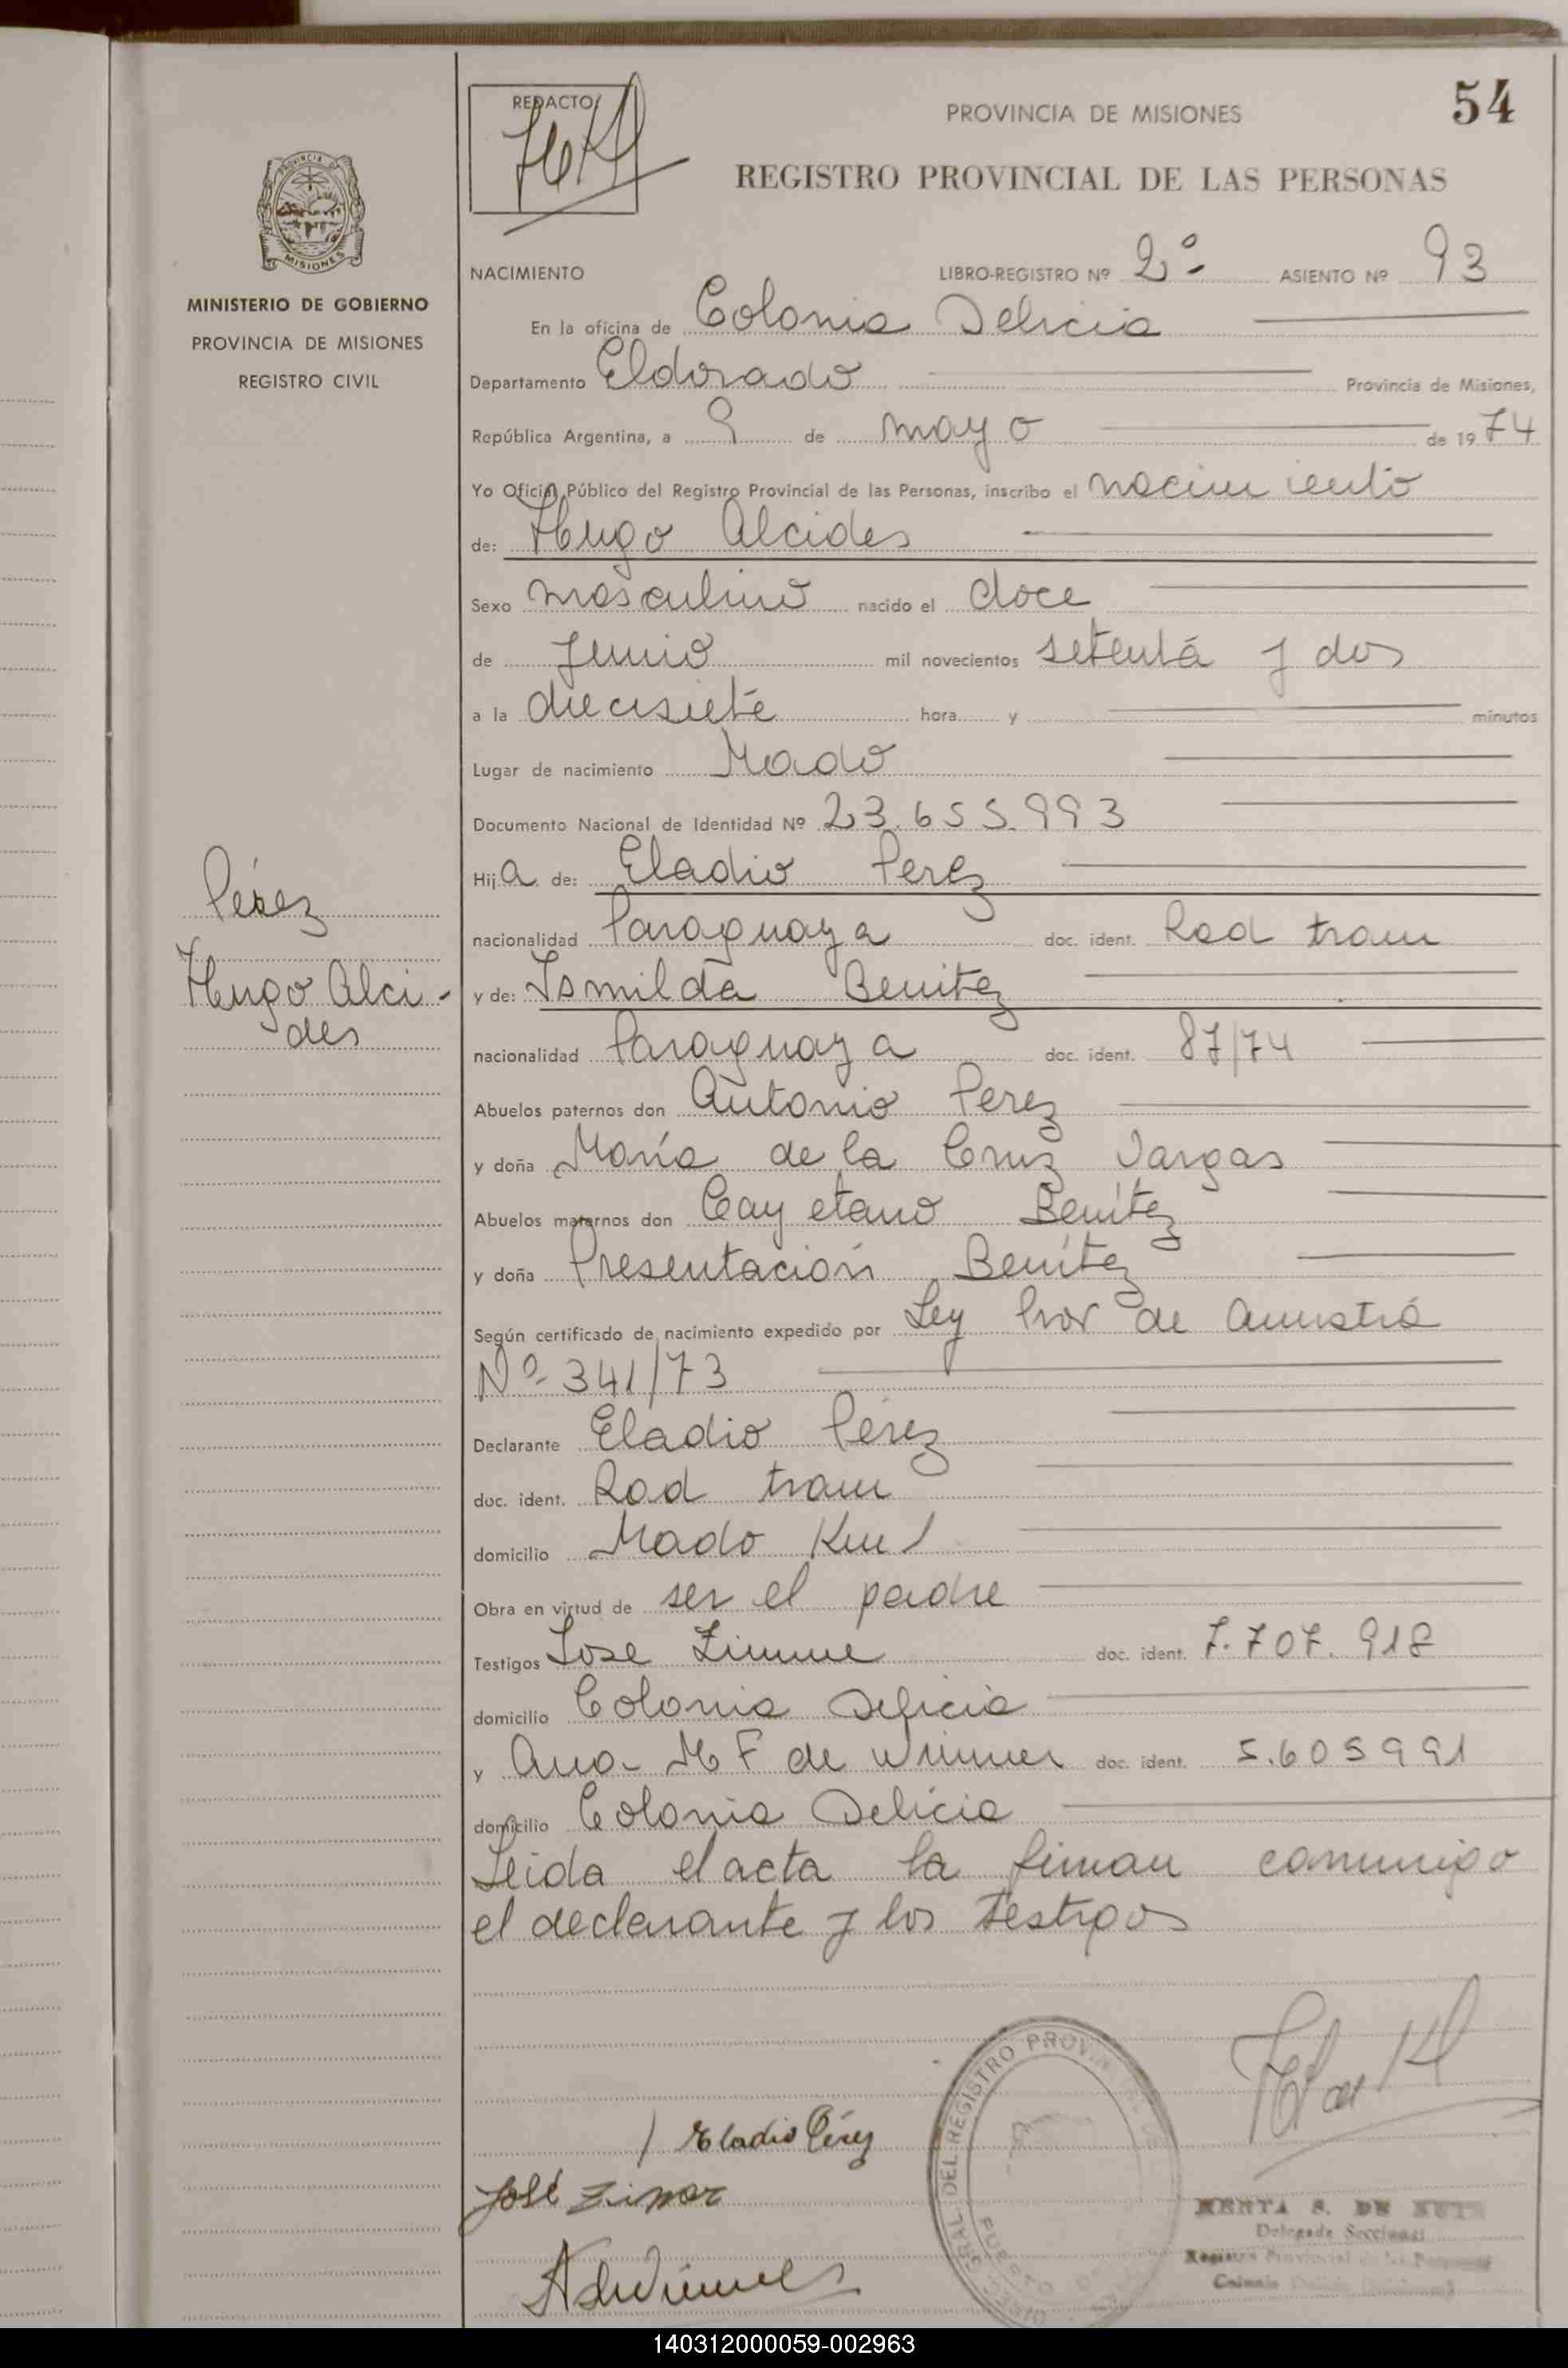 54
REDACTO
PROVINCIA DE MISIONES
REGISTRO PROVINCIAL DE LAS PERSONAS
MISIONES
MINISTERIO DE GOBIERNO
PROVINCIA DE MISIONES
REGISTRO CIVIL
NACIMIENTO LIBRO-REGISTRO Nº 2º ASIENTO Nº 93
En la oficina de Colonia Delicia
Departamento Eldorado Provincia de Misiones,
República Argentina, a 9 de mayo de 1974
Yo Oficial Público del Registro Provincial de las Personas, inscribo el nacimiento
de: Hugo Alcides
Sexo masculino nacido el doce
de Junio mil novecientos setenta y dos
a la diecisiete hora y minutos
Lugar de nacimiento Mado
Documento Nacional de Identidad Nº 23.655.993
Hij a de: Eladio Perez
nacionalidad Paraguaya doc. ident. Rad tram
y de: Ismilda Benitez
nacionalidad Paraguaya doc. ident. 87/74
Abuelos paternos don Antonio Perez
y doña María de la Cruz Vargas
Abuelos maternos don Cayetano Benítez
y doña Presentación Benítez
Según certificado de nacimiento expedido por Ley Prov de Amnistía
Nº 341/73
Declarante Eladio Pérez
doc. ident. Rad tram
domicilio Mado Km 1
Obra en virtud de ser el padre
Testigos Jose doc. ident. 7.707.918
domicilio Colonia Delicia
y Ana M F de Wimmer doc. ident. 5.605991
domicilio Colonia Delicia
Leida el acta la firman conmigo
el declarante y los testigos
Pérez
Hugo Alci-
des
Eladio Pérez
José
DEL REGISTRO
Delegada Seccional
140312000059-002963